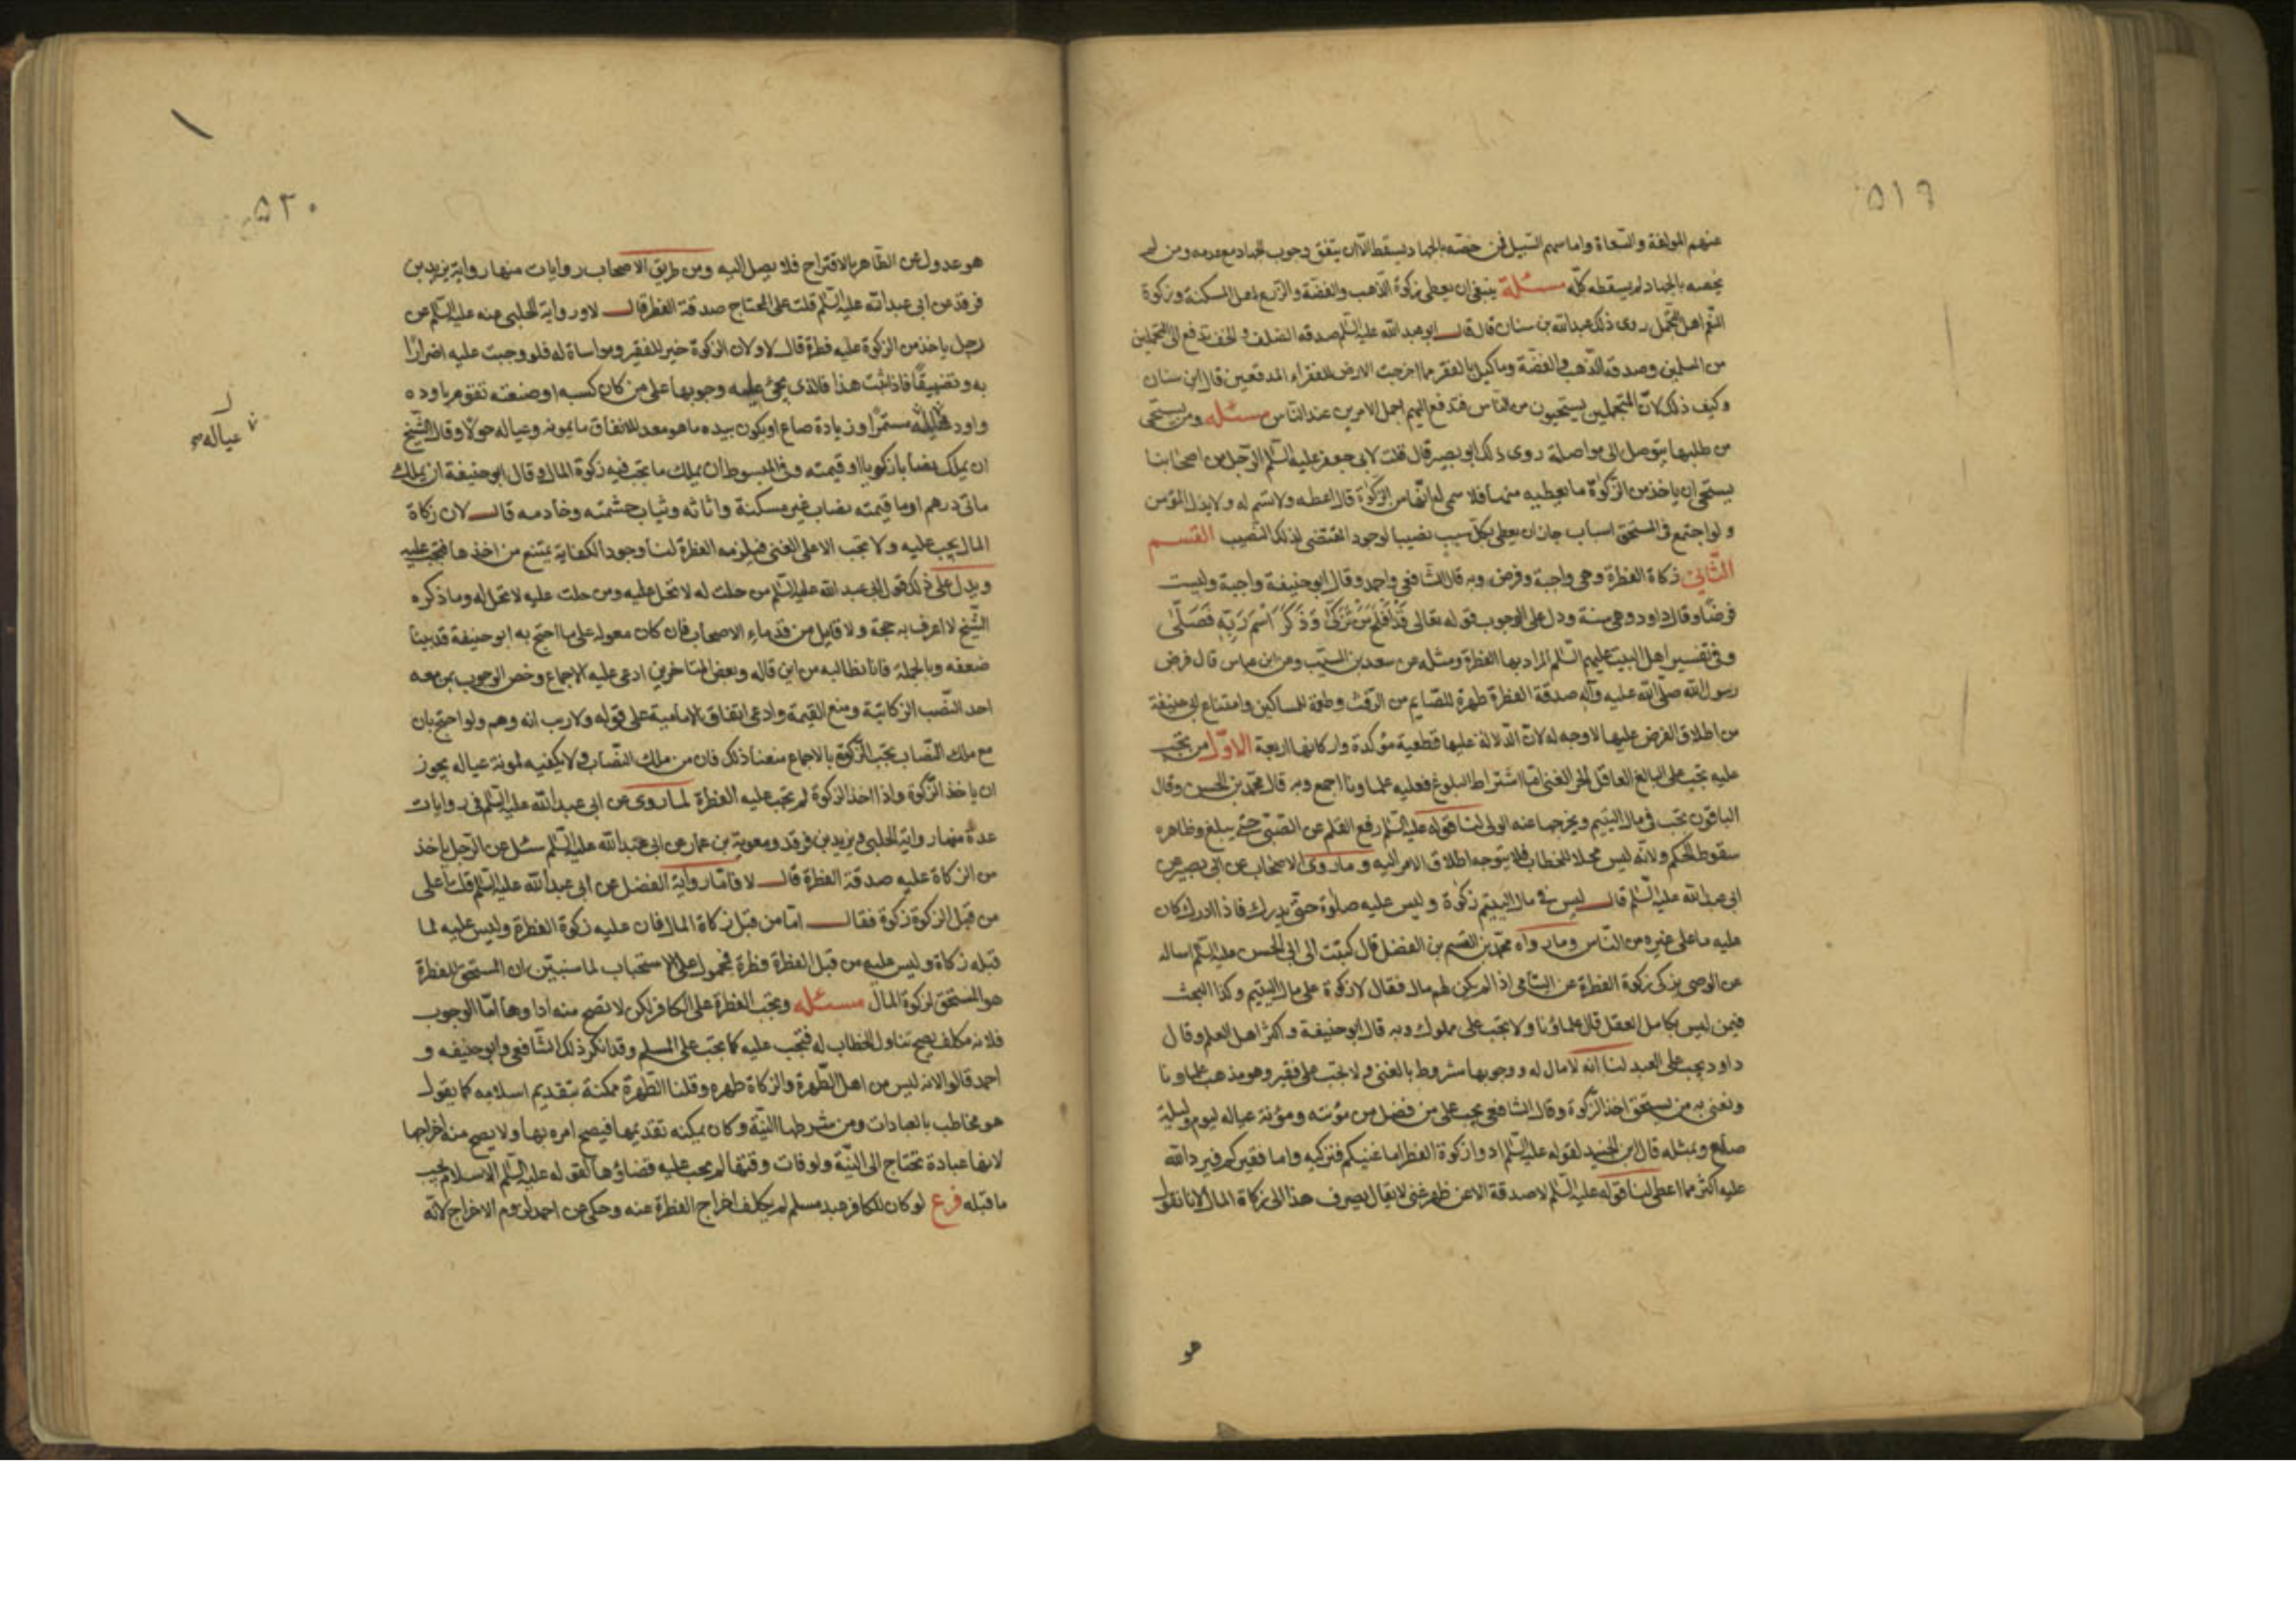 ٥١٩
عنهم المولفة والسّعاة واما سهم السّبيل فمن خصّه بالجهاد يسقط الّا ان يتفق وجوب الجهاد مع عدمه ومن لم
يخصه بالجهاد لم يسقطه كلّه مسئلة ينبغى ان يعطى زكوة الذّهب والفضّة والزّرع اهل المسكنة وزكوة
النّعم اهل التجمّل روى ذلك عبدالله بن سنان قال قال ابو عبد الله عليه السّلم صدقه الضلف والخف تدفع الى المتجملين
من المسلمين وصدقه الذّهب والفضّة وما كيل بالفقر مما اخرجت الارض للفقراء المدقعين قال ابن سنان
وكيف ذلك لانّ المتجملين يستحيون من النّاس فتدفع اليهم اجمل الامرين عند النّاس مسئله ومن يستحى
من طلبها يتوصل الى مواصلة روى ذلك ابو بصير قال قلت لابى جعفر عليه السّلم الرّجل من اصحابنا
يستحى ان ياخذ من الزّكوة ما يعطيه منها فلا سمى له انّها من الزّكوة قال اعطه ولا تسم له ولا يذل المؤمن
ولو اجتمع فى المستحق اسباب جاز ان يعطى بكلّ سبب نصيبا لوجود المقتضى لذلك النّصيب القسم
الثّانى زكاة الفطرة وهى واجبة وفرض وبه قال الشّافعى واحمد وقال ابوحنيفة واجبة وليست
فرضًا وقال داود وهى سنة ودل على الوجوب قوله تعالى قَدْ اَفْلَحَ مَنْ تَزَكّٰى وَذَكَرَ اسْمَ رَبِّهٖ فَصَلّٰى
وفى تفسير اهل البيت عليهم السّلم المراد بها الفطرة ومثله عن سعد بن المسيّب وعن ابن عباس قال فرض
رسول الله صلّى الله عليه وآله صدقة الفطرة طهرة للصّايم من الرّفث وطعمة للمساكين وامتناع ابى حنيفة
من اطلاق الفرض عليها لا وجه له لانّ الدّلالة عليها قطعية مؤكدة واركانها اربعة الاوّل من تجب
عليه تجب على البالغ العاقل الحر الغنى امّا اشتراط البلوغ فعليه علماونا اجمع وبه قال محمّد بن الحسن وقال
الباقون تجب فى مال اليتيم ويخرجها عنه الولى لنا قوله عليه السّلم رفع القلم عن الصّبى حتّى يبلغ وظاهره
سقوط الحكم ولانّه ليس محلا للخطاب فلا يتوجه اطلاق الامر اليه وما روى الاصحاب عن ابى بصير عن
ابى عبد الله عليه السّلم قال ليس فى مال اليتيم زكوة وليس عليه صلوة حتّى يدرك فاذا ادرك كان
عليه ما على غيره من النّاس وما رواه محمّد بن القسم بن الفضل قال كتبت الى ابى الحسن عليه السّلم اساله
عن الوصى يزكى زكوة الفطرة عن اليتامى اذا لم يكن لهم مال فقال لا زكوة على مال اليتيم وكذا البحث
فيمن ليس بكامل العقل قال علماؤنا ولا تجب على مملوك وبه قال ابوحنيفة واكثر اهل العلم وقال
داود يجب على العبد لنا انه لا مال له ووجوبها مشروط بالغنى ولا تجب على فقير وهو مذهب علماونا
ونعنى به من يستحق اخذ الزّكوة وقال الشافعى يجب على من فضل من مؤنته ومؤنة عياله ليوم وليلة
صاع وبمثله قال ابن الجنيد لقوله عليه السّلم ادوا زكوة الفطر اما غنيكم فتزكيه واما فقيركم فيرد الله
عليه اكثر مما اعطى لنا قوله عليه السّلم لا صدقة الا عن ظهر غنى لا يقال يصرف هذا الى زكاة المال لانا نقول
هو
٥٢٠
هو عدول عن الظّاهر بالاقتراح فلا يصل اليه ومن طريق الاصحاب روايات منها رواية يزيد بن
فرقد عن ابى عبد الله عليه السّلم قلت على المحتاج صدقة الفطر قال لا ورواية الحلبى عنه عليه السّلم عن
رجل ياخذ من الزكوة عليه فطرة قال لا ولان الزكوة خير للفقير ومواساة له فلو وجبت عليه اضرارًا
به وتضييقًا فاذا ثبت هذا فالذى يجئ عليه وجوبها على من كان كسبه او صنعته تقوم باوده
واود مستمرًا وزيادة صاع او يكون بيده ما هو معد للانفاق ما يمونه وعياله حولًا وقال الشّيخ
عياله
ان يملك نصابا زكويا او قيمته وفى المبسوط ان يملك ما تجب فيه زكوة المال وقال ابوحنيفة ان يملك
مائى درهم او ما قيمته نصاب غير مسكنة واثاثه وثياب حشمته وخادمه قال لان زكاة
المال يجب عليه ولا تجب الا على الغنى فيلزمه الفطرة لنا وجود الكفاية يمتنع من اخذها فتجب عليه
ويدل على ذلك قول ابى عبد الله عليه السّلم من حلت له لا تحل عليه ومن حلت عليه لا تحل له وما ذكره
الشّيخ لا اعرف به حجة ولا قايل من قدماء الاصحاب فان كان معوله على ما احتج به ابو حنيفة قد بينا
ضعفه وبالجملة فانا نطالبه من اين قاله وبعض المتاخرين ادعى عليه الاجماع وخص الوجوب بمن معه
احد النّصب الزكاتية ومنع القيمة وادعى اتفاق الامامية على قوله ولا ريب انه وهم ولو احتج بان
مع ملك النّصاب تجب الزّكوة بالاجماع منعنا ذلك فان من ملك النصّاب ولا يكفيه لمونة عياله يجوز
ان ياخذ الزّكوة واذا اخذ الزكوة لم تجب عليه الفطرة لما روى عن ابى عبد الله عليه السّلم فى روايات
عدة منها رواية الحلبى ويزيد بن فرقد ومعوية بن عمار عن ابى عبد الله عليه السّلم سئل عن الرّجل ياخذ
من الزكاة عليه صدقة الفطرة قال لا فامّا رواية الفضل عن ابى عبد الله عليه السّلم قلت أعلى
من قبل الزكوة زكوة فقال امّا من قبل زكاة المال فان عليه زكوة الفطرة وليس عليه لما
قبله زكاة وليس على من قبل الفطرة فطرة فمحمول على الاستحباب لما سنبيّن ان المستحق للفطرة
هو المستحق لزكوة المال مسئله وتجب الفطرة على الكافر لكن لا تصح منه اداوها امّا الوجوب
فلانه مكلف يصح تناول الخطاب له فتجب عليه كما تجب على المسلم وقد انكر ذلك الشّافعى وابو حنيفه و
احمد قالوا لانه ليس من اهل الطّهرة والزكاة طهره وقلنا الطّهرة ممكنة بتقديم اسلامه كما يقول
هو مخاطب بالعبادات ومن شرطها النيّة وكان يمكنه تقديمها فيصح امره بها ولا يصح منه اخراجها
لانها عبادة تحتاج الى النيّة ولو فات وقتها لم يجب عليه قضاؤها لقوله عليه السّلم الاسلام يجب
ما قبله فرع لو كان للكافر عبد مسلم لم يكلف اخراج الفطرة عنه وحكى عن احمد لزوم الاخراج لانّه